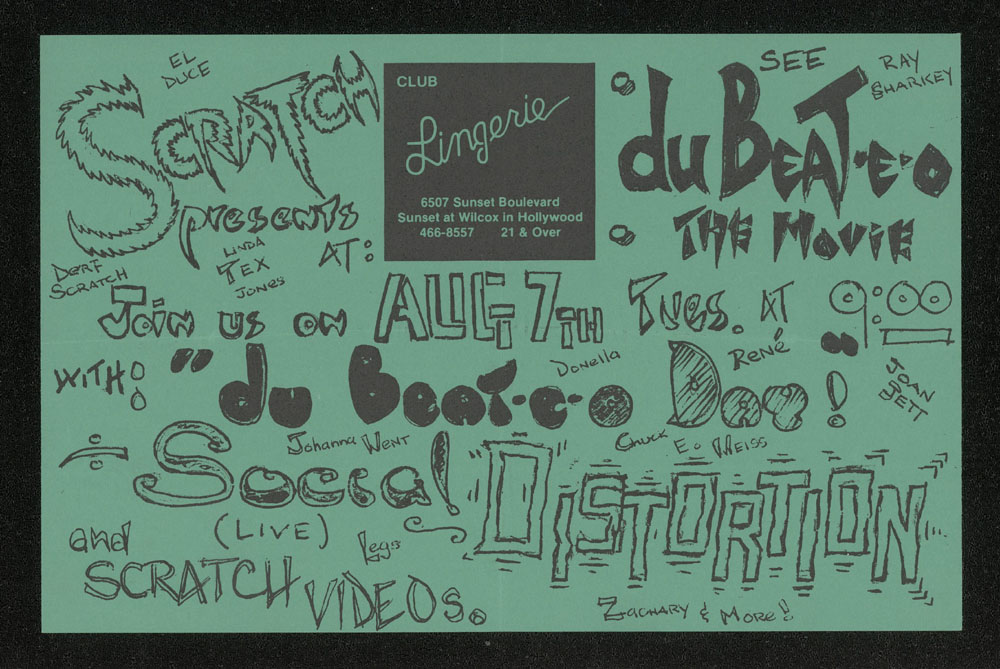 EL DUCE
SCRATCH
presents
AT:
DERF SCRATCH
LINDA
TEX
JONES
CLUB
Lingerie
6507 Sunset Boulevard
Sunset at Wilcox in Hollywood
466-8557 21 & Over
SEE
RAY SHARKEY
du BEAT-E-O
THE MOVIE
Join us on AUG 7TH TUES. AT 9:00
WITH!
"du Beat-e-o Day!"
Donella
René
JOAN JETT
Johanna WENT
Chuck E. WEISS
Social "DISTORTION"
(LIVE)
Legs
and
SCRATCH VIDEOS.
ZACHARY & MORE!